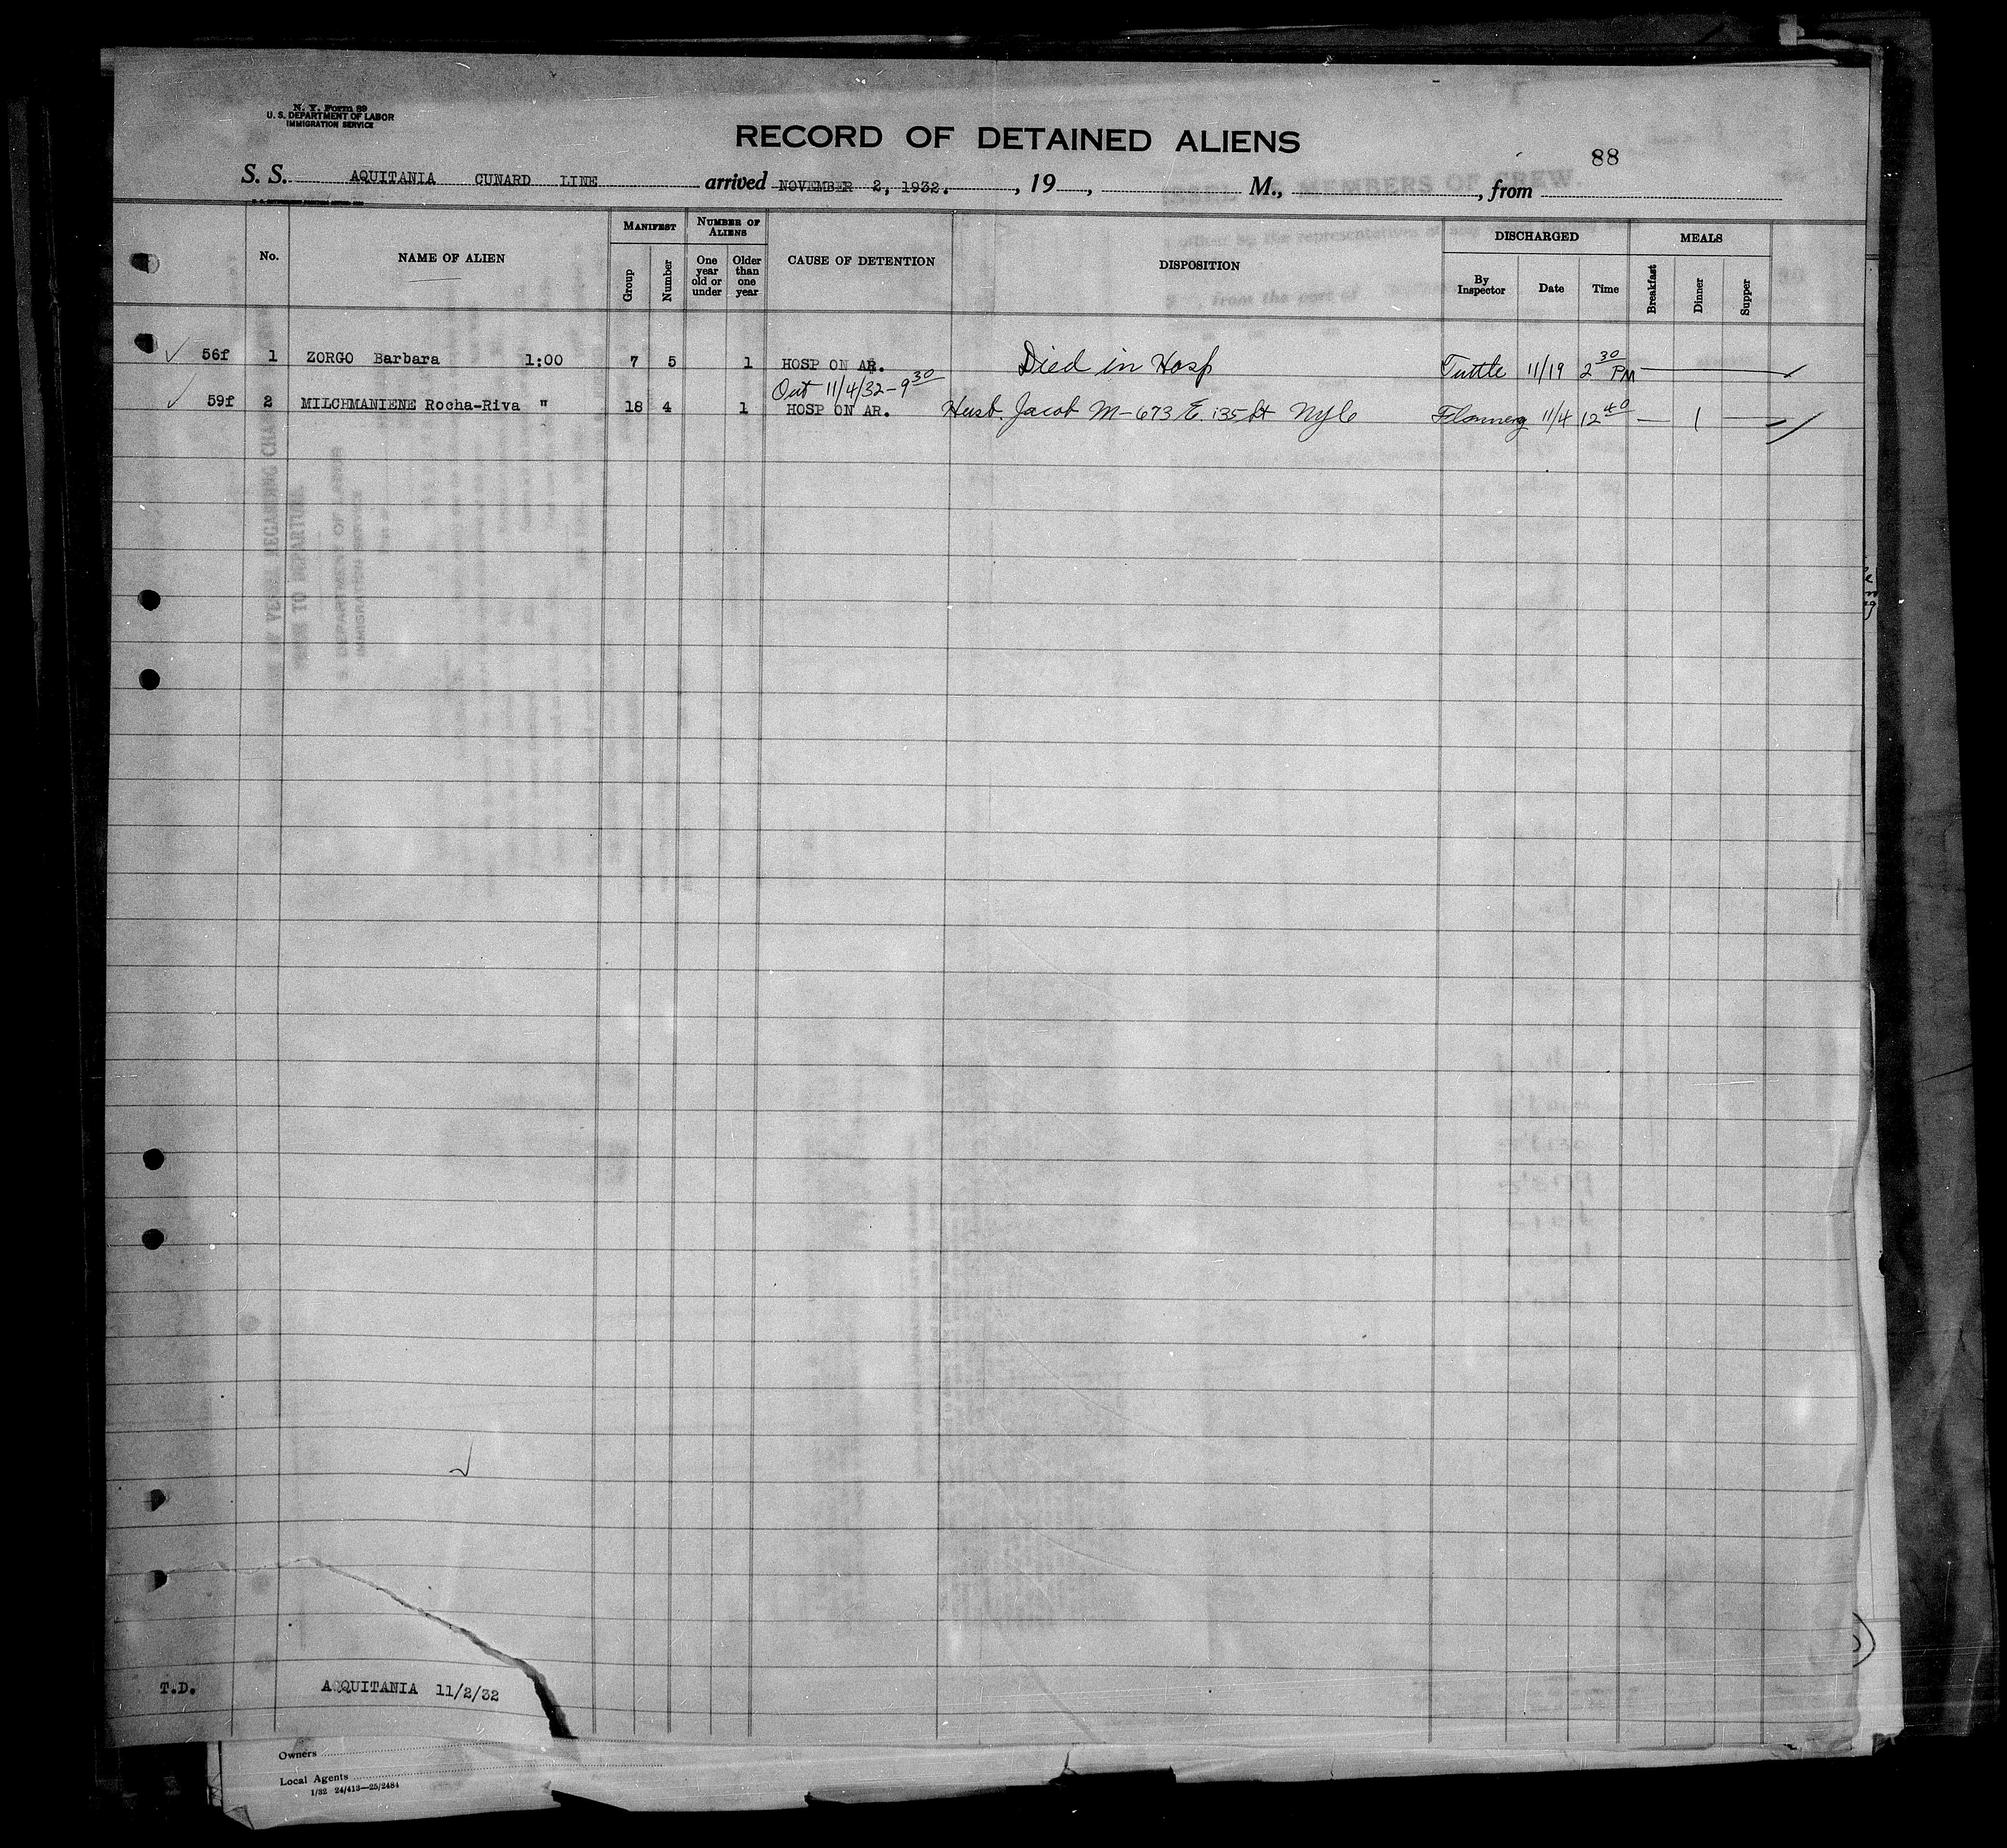 N. Y. Form 89
U. S. DEPARTMENT OF LABOR
IMMIGRATION SERVICE
RECORD OF DETAINED ALIENS
88
S. S. AQUITANIA CUNARD LINE arrived NOVEMBER 2, 1932. , 19 , M., , from
No.
NAME OF ALIEN
MANIFEST
Group
Number
NUMBER OF ALIENS
One year old or under
Older than one year
CAUSE OF DETENTION
DISPOSITION
DISCHARGED
By Inspector
Date
Time
MEALS
Breakfast
Dinner
Supper
56f 1 ZORGO Barbara 1:00 7 5 1 HOSP ON AR. Died in Hosp Tuttle 11/19 2 30 PM
Out 11/4/32-9 30
59f 2 MILCHMANIENE Rocha-Riva " 18 4 1 HOSP ON AR. Husb. Jacob M-673 E. 135 St NYC Flannery 11/4 12 40 — 1 —
T.D. AQUITANIA 11/2/32
Owners
Local Agents
1/32 24/413—25/2484